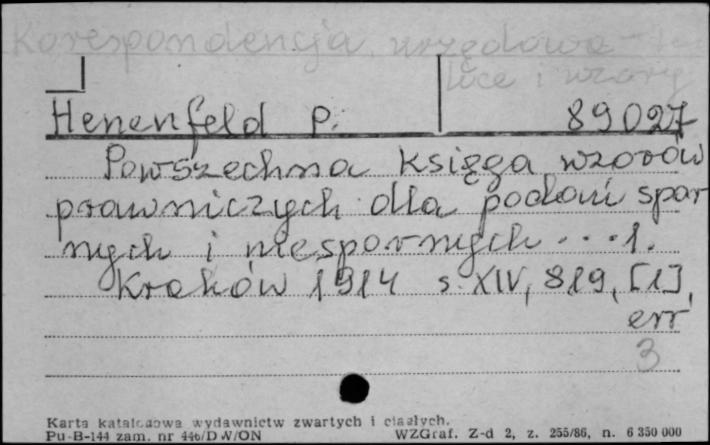 Korespondencja urzędowa
i wzory
Henenfeld P. 89027
Powszechna księga wzorów
prawniczych dla podań spor
nych i niespornych . . . 1.
Kraków 1914 s. XIV, 819, [1],
err
3
Karta katalogowa wydawnictw zwartych i ciągłych.
Pu-B-144 zam. nr 446/DW/ON WZGraf. Z-d 2, z. 255/86, n. 6 350 000